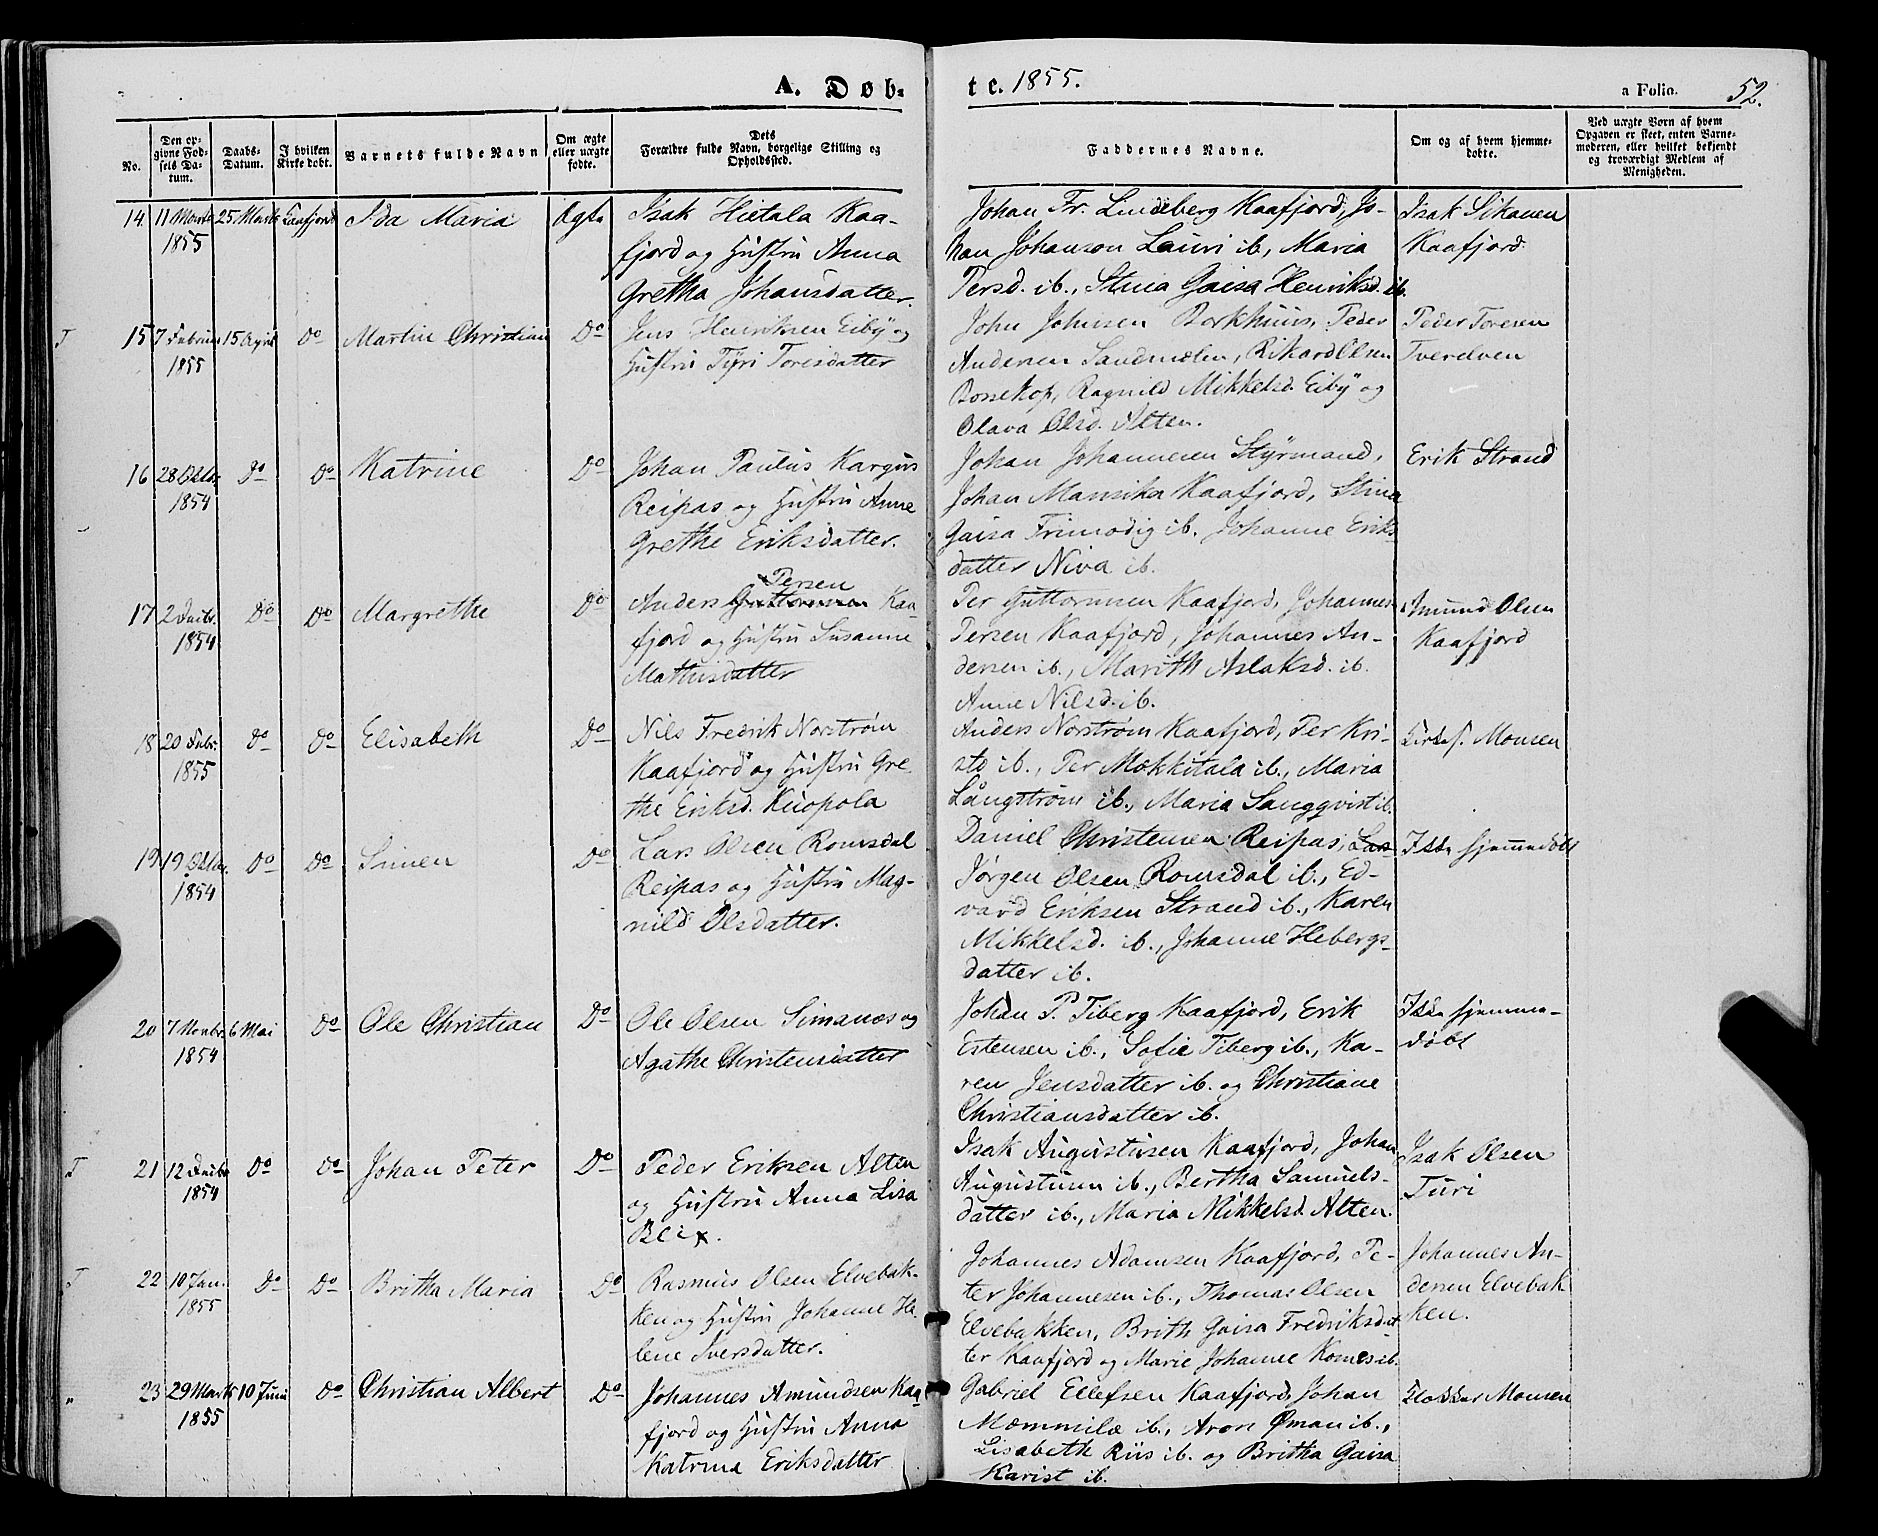 A. Døb-
te. 1855.
a Folio. 52.
No.
Den op-
givne Fød-
sels Da-
tum.
Daabs-
Datum.
I hvilken
Kirke døbt.
Barnets fulde Navn
Om ægte
eller uægte
fødte.
Dets
Forældre fulde Navn, borgelige Stilling og
Opholdssted.
Faddernes Navne.
Om og af hvem hjemme-
døbte.
Ved uægte Børn af hvem
Opgaven er skeet, enten Barne-
moderen, eller hvilket bekjendt
og troværdigt Medlem af
Menigheden.
14. 11 Marts 25 Marts Kaafjord Ida Maria Ægte
1855
Isak Hietala Kaa-
fjord og Hustru Anna
Gretha Johansdatter.
Johan Fr. Lindeberg Kaafjord, Jo-
han Johanson Lauri ib., Maria
Persd. ib., Stina Gaisa Henriksd. ib.
Isak Sikanen
Kaafjord.
T 15 7 Februar 15 April Do Martin Christian Do
1855
Jens Henriksen Eiby og
Hustru Tyri Toresdatter
John Johnsen Borkhuus, Peder
Andersen Sandmælen, Rikard Olsen
Bossekop, Ragnild Mikkelsd. Eiby og
Olava Olsd. Alten.
Peder Toresen
Tverelven
16 28 Oktbr. Do Do Katrine Do
1854
Johan Paulus Kargus
Reipas og Hustru Anne
Grethe Eriksdatter.
Johan Johannesen Styrmand,
Johan Mansika Kaafjord, Stina
Gaisa Frimodig ib. Johanne Eriks-
datter Niva ib.
Erik Strand
17 2 Decbr. Do Do Margrethe Do
1854
Persen
Anders Guttormsen Kaa-
fjord og Hustru Susanne
Mathisdatter
Per Guttormsen Kaafjord, Johannes
Persen Kaafjord, Johannes An-
dersen ib., Marith Aslaksd. ib.
Anne Nilsd. ib.
Amund Olsen
Kaafjord
18 20 Febr. Do Do Elisabeth Do
1855
Nils Fredrik Norstrøm
Kaafjord og Hustru Gre
the Eriksd. Kuopola
Anders Norstrøm Kaafjord, Per Kri-
sto ib., Per Mokkitala ib., Maria
Långstrøm ib., Maria Sangqvist ib.
Monsen
19 19 Oktbr. Do Do Simen Do
1854
Lars Olsen Romsdal
Reipas og Hustru Mag-
nild Olsdatter.
Daniel Christensen Reipas, Lars
Jørgen Olsen Romsdal ib., Ed-
vard Eriksen Strand ib., Karen
Mikkelsd. ib., Johanne Hebergs-
datter ib.
Ikke hjemmedøbt
20 7 Novbr. 6 Mai Do Ole Christian Do
1854
Ole Olsen Simanæs og
Agathe Christensdatter
Johan P. Tiberg Kaafjord, Erik
Estensen ib., Sofie Tiberg ib., Ka-
ren Jensdatter ib. og Christiane
Christiansdatter ib.
Ikke hjemme-
døbt
T 21 12 Decbr. Do Do Johan Peter Do
1854
Peder Eriksen Alten
og Hustru Anna Lisa
Blix.
Isak Augustusen Kaafjord, Johan
Augustusen ib., Bertha Samuels-
datter ib., Maria Mikkelsd. Alten.
Isak Olsen
Turi
T 22 10 Jan. Do Do Britha Maria Do
1855
Rasmus Olsen Elvebak-
ken og Hustru Johanne He-
lene Iversdatter.
Johannes Adamsen Kaafjord, Pe-
ter Johannesen ib., Thomas Olsen
Elvebakken, Brith Gaisa Fredriksdat
ter Kaafjord og Marie Johanne Komes ib.
Johannes An-
dersen Elvebak
ken.
" 23 29 Marts 10 Juni Do Christian Albert Do
1855
Johannes Amundsen Kaa
fjord og Hustru Anna
Katrina Eriksdatter
Gabriel Ellefsen Kaafjord, Johan
Mæmmilæ ib., Aron Øman ib.,
Lisabeth Riis ib. og Britha Gaisa
Karist ib.
Klokker Monsen